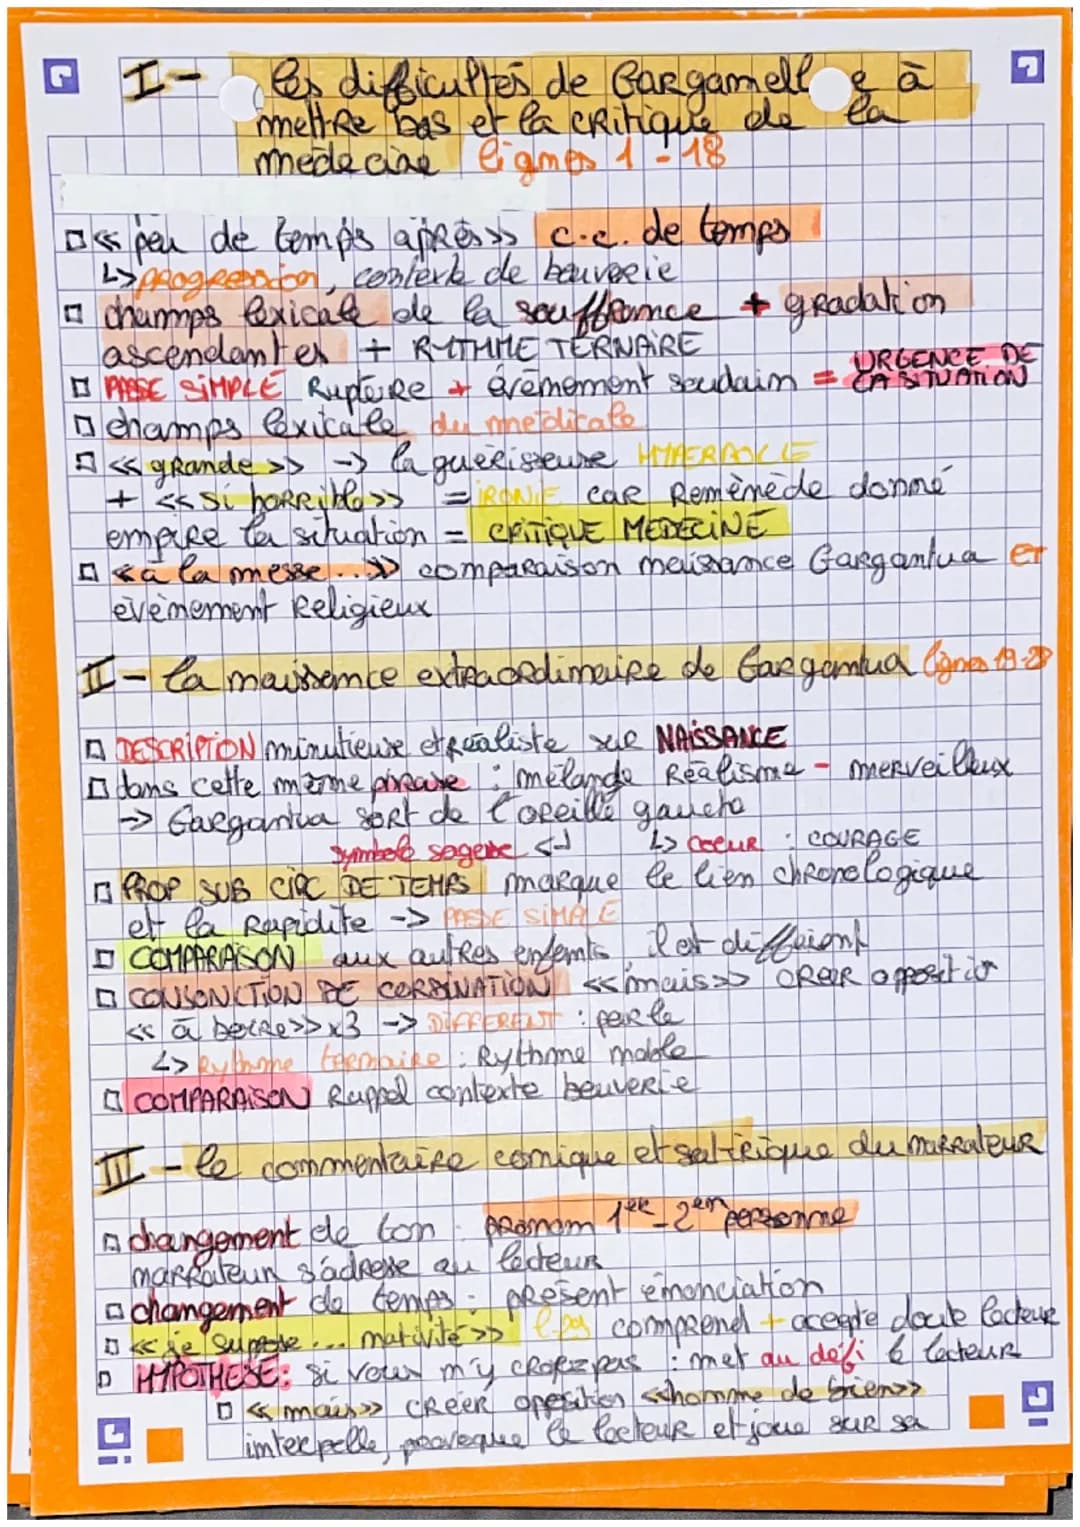 I - les difficultés de Gargamelle à
mettre bas et la critique de la
médecine lignes 1-18
«peu de temps après» c.c. de temps
↳ PROGRESSION, contexte de beuverie
champs lexicale de la souffrance + gradation
ascendantes + RYTHME TERNAIRE
PASSE SIMPLE Rupture + évènement soudain = URGENCE DE
LA SITUATION
champs lexicale du médicale
«grande» -> la guérisseuse HYPERBOLE
+ «si horrible» = IRONIE car Remènède donné
empire la situation = CRITIQUE MEDECINE
«à la messe...» comparaison naissance Gargantua et
évènement Religieux
II - la naissance extraordinaire de Gargantua lignes 19-28
DESCRIPTION minutieuse et réaliste sur NAISSANCE
dans cette même phrase : mélande Réalisme - merveilleux
-> Gargantua sort de l'oreille gauche
symbole sagesse ↲ ↳ coeur : COURAGE
PROP SUB CIRC DE TEMPS marque le lien chronologique
et la Rapidité -> PASSE SIMPLE
COMPARAISON aux autres enfants, il est différent
CONJONCTION DE CORDINATION «mais» créer opposition
«à boire» x3 -> DIFFERENT : parle
↳ Rythme ternaire : Rythme noble
COMPARAISON Rappel contexte beuverie
III - le commentaire comique et satirique du narrateur
changement de ton : pronom 1er - 2em personne
narrateur s'adresse au lecteur
changement de temps : présent énonciation
«je suppose... nativité» comprend + accepte doute lecteur
HYPOTHESE: si vous m'y croyez pas : met au défi le lecteur
«mais» créer opposition «homme de bien»
interpelle, provoque le lecteur et joue sur sa